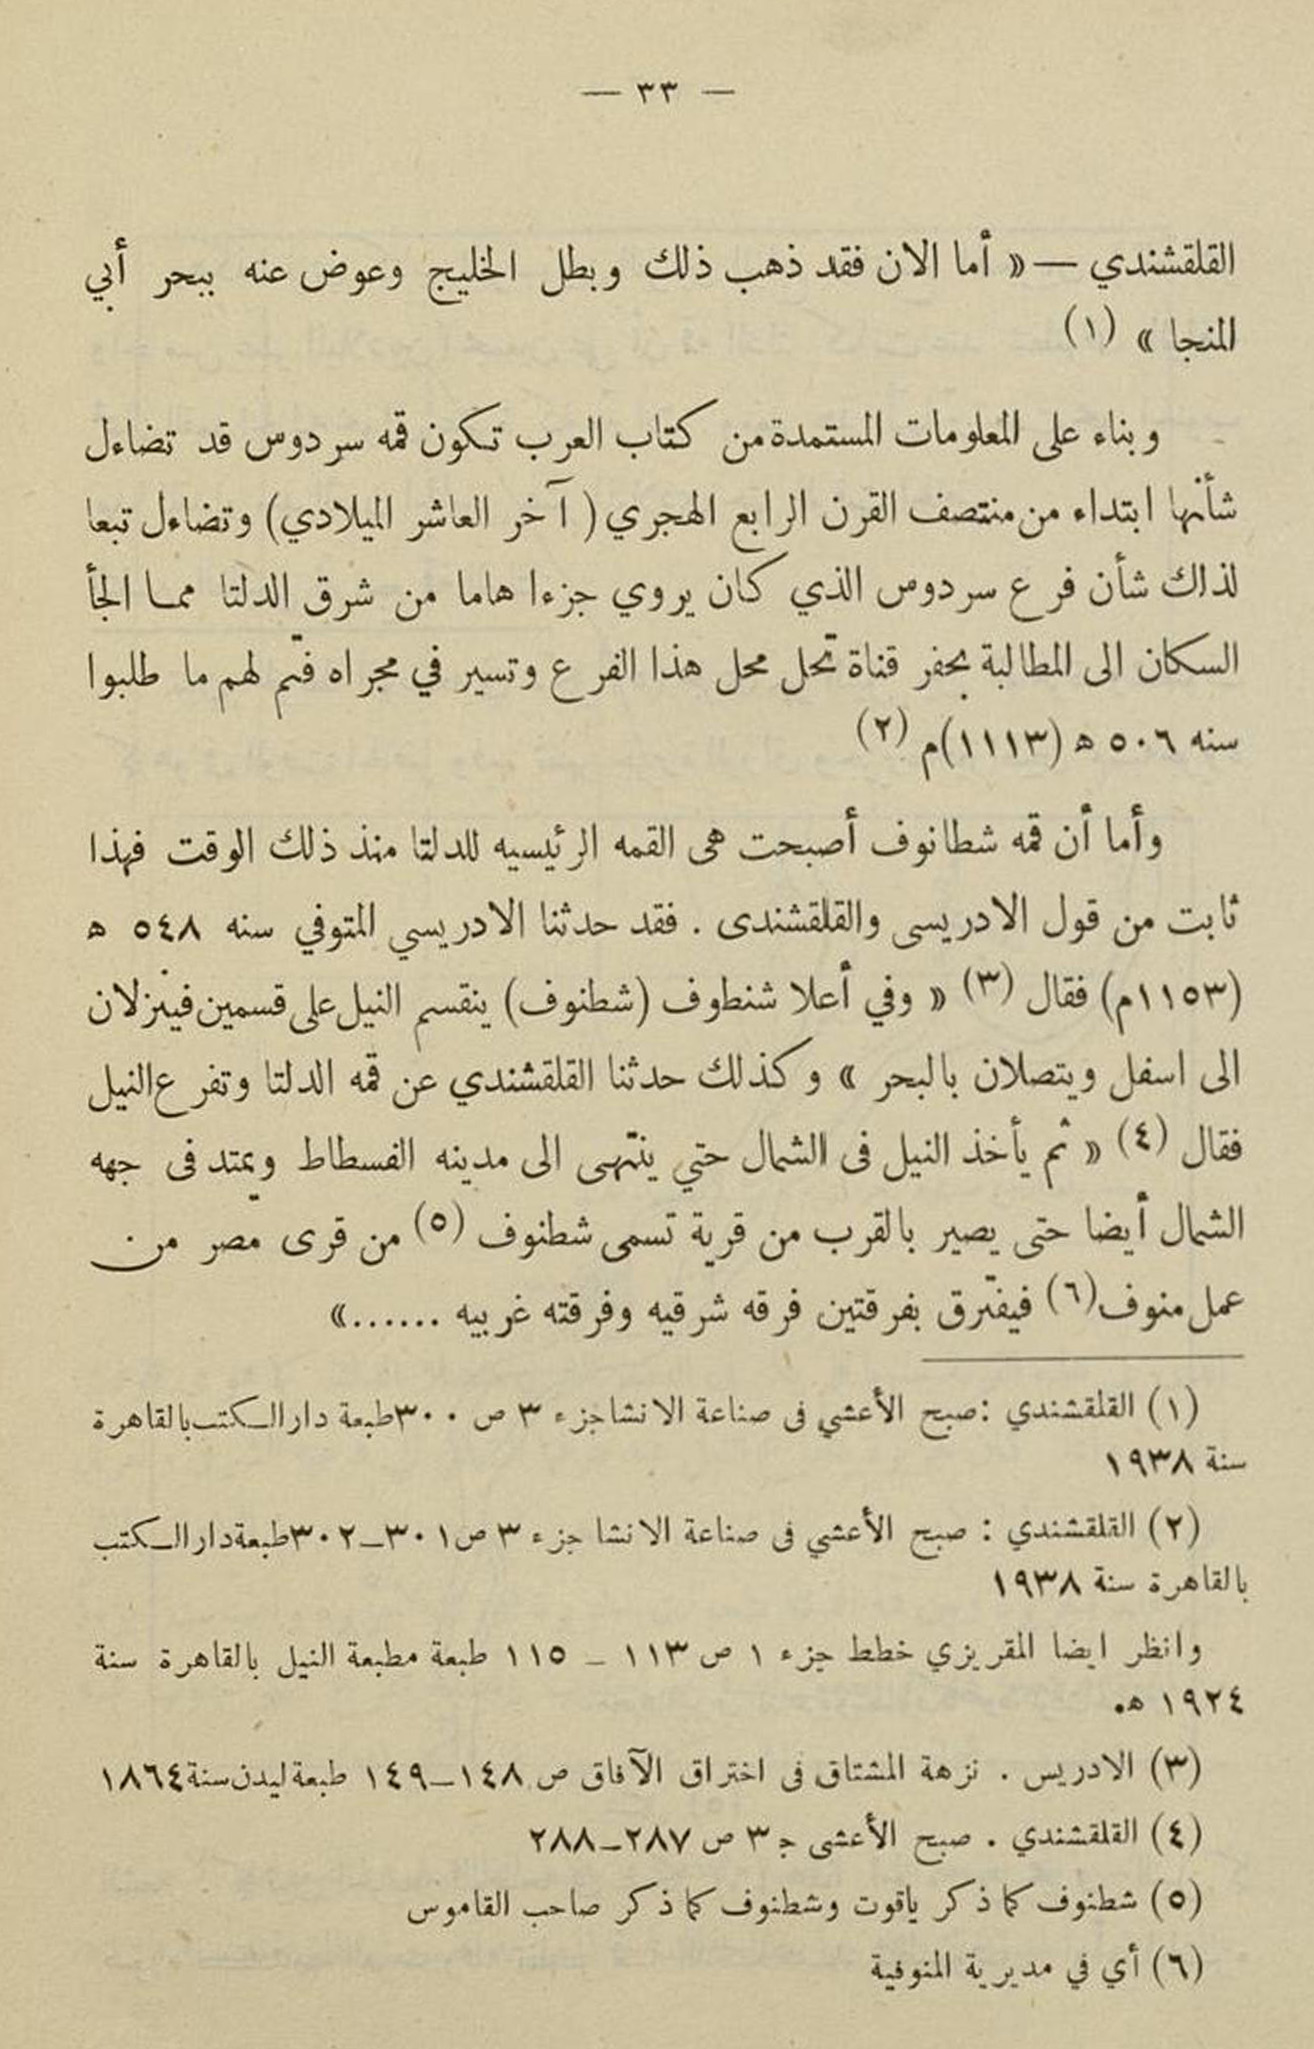 — ٣٣ —
القلقشندي — « أما الان فقد ذهب ذلك وبطل الخليج وعوض عنه ببحر أبي
المنجا » (١)
وبناء على المعلومات المستمدة من كتاب العرب تكون قمه سردوس قد تضاءل
شأنها ابتداء من منتصف القرن الرابع الهجري ( آخر العاشر الميلادي) وتضاءل تبعا
لذاك شأن فرع سردوس الذي كان يروي جزءا هاما من شرق الدلتا مما الجأ
السكان الى المطالبة بحفر قناة تحل محل هذا الفرع وتسير في مجراه فتم لهم ما طلبوا
سنه ٥٠٦ ه (١١١٣)م (٢)
وأما أن قمه شطانوف أصبحت هى القمه الرئيسيه للدلتا منذ ذلك الوقت فهذا
ثابت من قول الادريسى والقلقشندى . فقد حدثنا الادريسي المتوفي سنه ٥٤٨ ه
(١١٥٣م) فقال (٣) « وفي أعلا شنطوف (شطنوف) ينقسم النيل على قسمين فينزلان
الى اسفل ويتصلان بالبحر » وكذلك حدثنا القلقشندي عن قمه الدلتا وتفرع النيل
فقال (٤) « ثم يأخذ النيل فى الشمال حتي ينتهى الى مدينه الفسطاط ويمتد فى جهه
الشمال أيضا حتى يصير بالقرب من قرية تسمى شطنوف (٥) من قرى مصر من
عمل منوف(٦) فيفترق بفرقتين فرقه شرقيه وفرقته غربيه ......»
(١) القلقشندي :صبح الأعشي فى صناعة الانشاجزء ٣ ص ٣٠٠طبعة دار الكتب بالقاهرة
سنة ١٩٣٨
(٢) القلقشندي : صبح الأعشي فى صناعة الانشا جزء ٣ ص ٣٠١ــ٣٠٢طبعة دار الكتب
بالقاهرة سنة ١٩٣٨
وانظر ايضا المقريزي خطط جزء ١ ص ١١٣ ــ ١١٥ طبعة مطبعة النيل بالقاهرة سنة
١٩٢٤ ه.
(٣) الادريس . نزهة المشتاق فى اختراق الآفاق ص ١٤٨ــ١٤٩ طبعة ليدن سنة ١٨٦٤
(٤) القلقشندي . صبح الأعشى ج ٣ ص ٢٨٧ــ٢٨٨
(٥) شطنوف كما ذكر ياقوت وشطنوف كما ذكر صاحب القاموس
(٦) أي في مديرية المنوفية